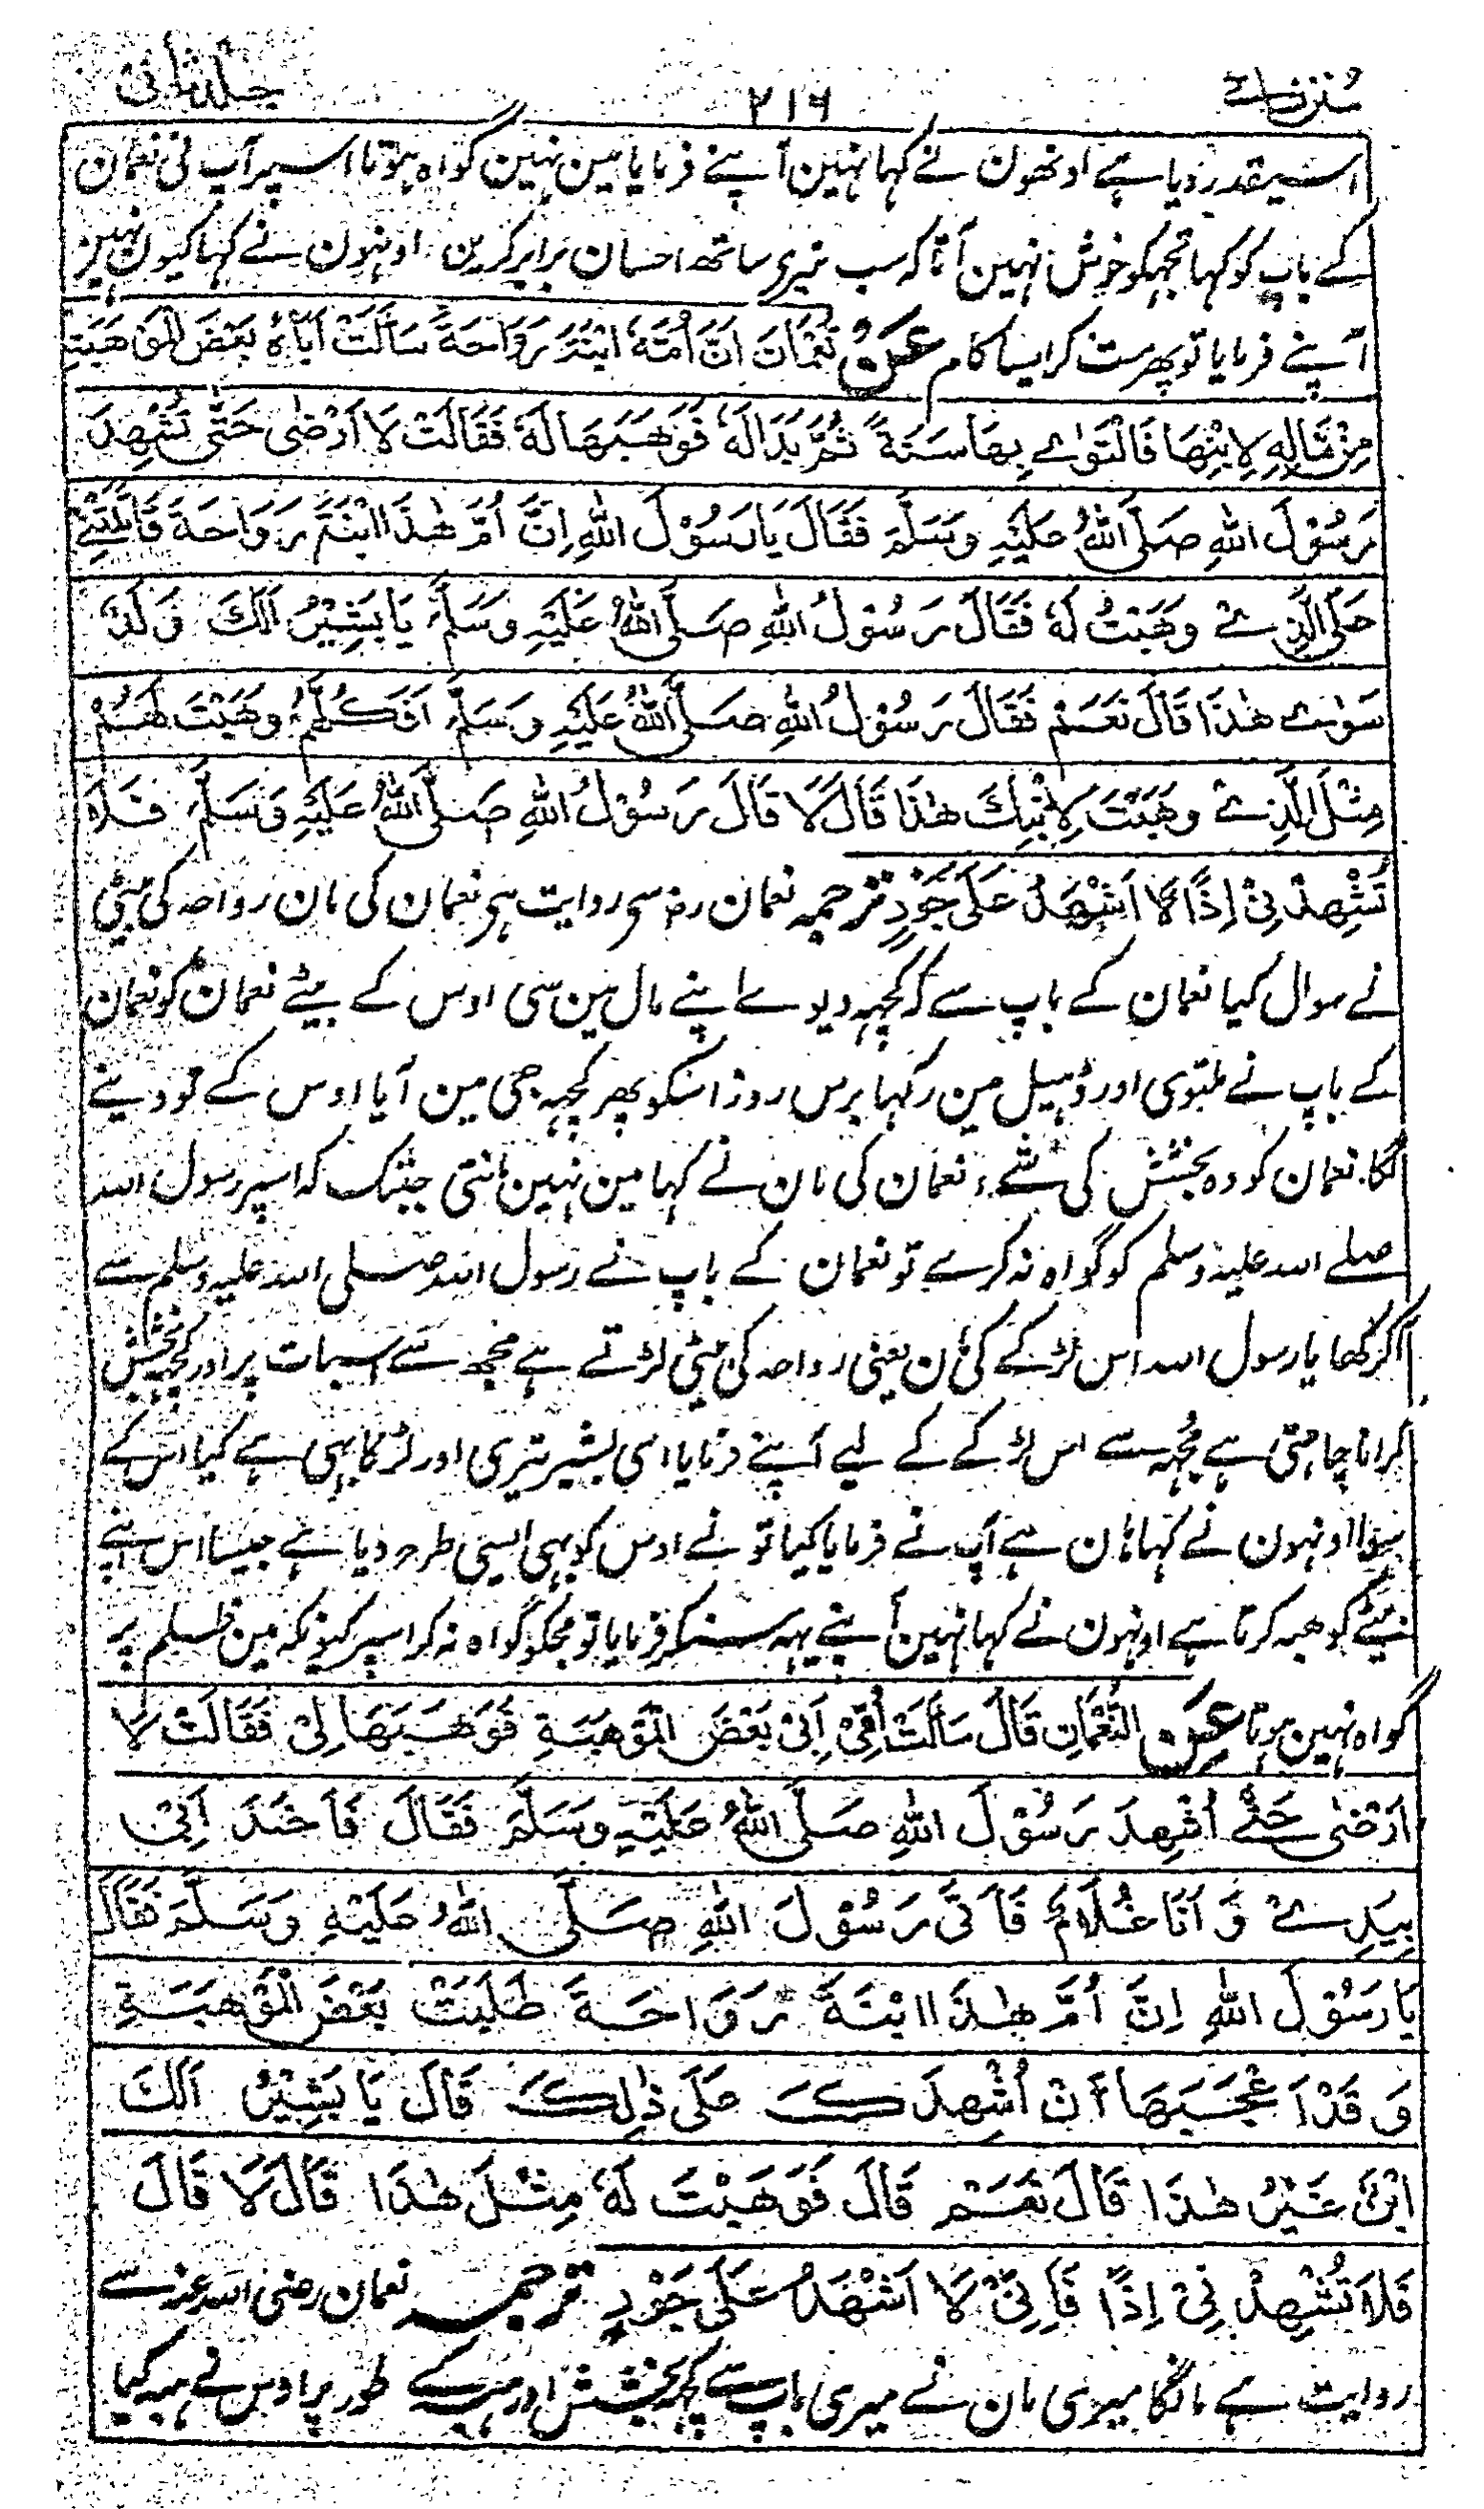 سنن نسائے
۲۱۶
جلد ثانی
اسیقدر دیا ہے اونھون نے کہا نہین آپنے فرمایا مین نہین گواہ ہوتا اسپر آپ نی نعمان
کے باپ کو کہا تجہکو خوش نہین آتا کہ سب تیری ساتھ احسان برابر کرین اونہون نے کہا کیون نہین
آپنے فرمایا تو پھر مت کر ایسا کام عَنْ نُعْمَانَ اَنَّ اُمَّهٗ ابْنَةَ رَوَاحَةَ سَاَلَتْ اَبَاهُ بَعْضَ الْمَوْهِبَةِ
مِنْ مَّالِهٖ لِابْنِهَا فَالْتَوٰے بِهَا سَنَةً ثُمَّ بَدَا لَهٗ فَوَهَبَهَا لَهٗ فَقَالَتْ لَا اَرْضٰى حَتّٰى تُشْهِدَ
رَسُوْلَ اللهِ صَلَّى اللهُ عَلَيْهِ وَسَلَّمَ فَقَالَ يَا رَسُوْلَ اللهِ اِنَّ اُمَّ هٰذَا ابْنَةَ رَوَاحَةَ قَاتَلَتْنِيْ
عَلَى الَّذِيْ وَهَبْتُ لَهٗ فَقَالَ رَسُوْلُ اللهِ صَلَّى اللهُ عَلَيْهِ وَسَلَّمَ يَا بَشِيْرُ اَلَكَ وَلَدٌ
سَوٰے هٰذَا قَالَ نَعَمْ فَقَالَ رَسُوْلُ اللهِ صَلَّى اللهُ عَلَيْهِ وَسَلَّمَ اَفَكُلَّهُمْ وَهَبْتَ لَهُمْ
مِثْلَ الَّذِيْ وَهَبْتَ لِابْنِكَ هٰذَا قَالَ لَا قَالَ رَسُوْلُ اللهِ صَلَّى اللهُ عَلَيْهِ وَسَلَّمَ فَلَا
تُشْهِدْنِيْ اِذًا لَا اَشْهَدُ عَلٰى جَوْرٍ ترجمہ نعمان رض سی روایت ہی نعمان کی مان رواحہ کی بیٹی
نے سوال کیا نعمان کے باپ سے کہ کچہہ دیوے اپنے مال مین سی اوس کے بیٹے نعمان کو نعمان
کے باپ نے ملتوی اور ڈہیل مین رکہا برس روز اسکو پھر کچہہ جی مین آیا اوس کے تو دینے
لگا نعمان کو وہ بخشش کی شے، نعمان کی مان نے کہا مین نہین مانتی جبتک کہ اسپر رسول اللہ
صلے اللہ علیہ وسلم کو گواہ نہ کرے تو نعمان کے باپ نے رسول اللہ صلی اللہ علیہ وسلم سے
آکر کھا یا رسول اللہ اس لڑکے کی مان یعنی رواحہ کی بیٹی لڑتے ہے مجھ سے اسبات پر اور کچہہ بخشش
کرانا چاہتی ہے مجہہ سے اس لڑکے کے لیے آپنے فرمایا ای بشیر تیری اور لڑکا بہی ہے کیا اس کے
سوا اونہون نے کہا ہان ہے آپ نے فرمایا کیا تو نے اوس کو بہی ایسی طرح دیا ہے جیسا اس اپنے
بیٹے کو ھبہ کرتا ہے اونہون نے کہا نہین آپنے یہہ سنکر فرمایا تو مجکو گواہ نہ کر اسپر کیونکہ مین ظلم پر
گواہ نہین ہوتا عَنِ النُّعْمَانِ قَالَ سَاَلَتْ اُمِّيْ اَبِيْ بَعْضَ الْمَوْهِبَةِ فَوَهَبَهَا لِيْ فَقَالَتْ لَا
اَرْضٰى حَتّٰى اُشْهِدَ رَسُوْلَ اللهِ صَلَّى اللهُ عَلَيْهِ وَسَلَّمَ فَقَالَ فَاَخَذَ اَبِيْ
بِيَدِيْ وَ اَنَا غُلَامٌ فَاَتٰى رَسُوْلَ اللهِ صَلَّى اللهُ عَلَيْهِ وَسَلَّمَ فَقَالَ
يَا رَسُوْلَ اللهِ اِنَّ اُمَّ هٰذَا ابْنَةَ رَوَاحَةَ طَلَبَتْ بَعْضَ الْمَوْهِبَةِ
وَ قَدْ اَعْجَبَهَا اَنْ اُشْهِدَكَ عَلٰى ذٰلِكَ قَالَ يَا بَشِيْرُ اَلَكَ
ابْنٌ غَيْرُ هٰذَا قَالَ نَعَمْ قَالَ فَوَهَبْتَ لَهٗ مِثْلَ هٰذَا قَالَ لَا قَالَ
فَلَا تُشْهِدْنِيْ اِذًا فَاِنِّيْ لَا اَشْهَدُ عَلٰى جَوْرٍ ترجمہ نعمان رضی اللہ عنہ سے
روایت ہے مانگا میری مان نے میری باپ سے کچہہ بخشش اور ہبہ کے طور پر اوس نے ہبہ کیا